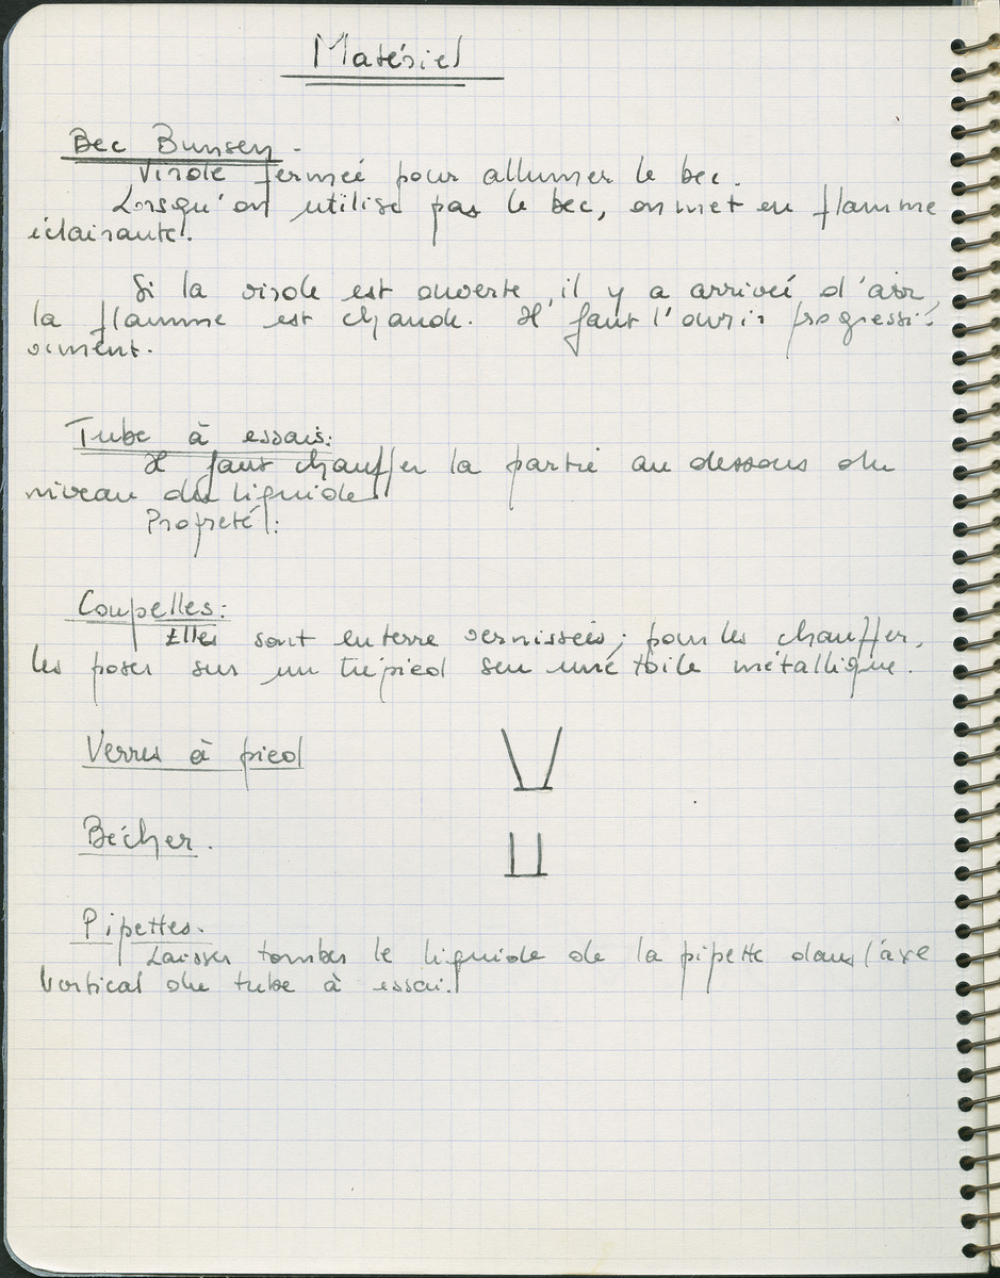 Matériel
Bec Bunsen.
Virole fermée pour allumer le bec.
Lorsqu'on utilise pas le bec, on met en flamme
éclairante.
Si la virole est ouverte, il y a arrivée d'air,
la flamme est chaude. Il faut l'ouvrir progressi-
vement.
Tube à essais:
Il faut chauffer la partie au dessous du
niveau du liquide
Propreté:
Coupelles:
Elles sont en terre vernissées; pour les chauffer,
les poser sur un trépied sur une toile métallique.
Verres à pied
Bécher.
Pipettes.
Laisser tomber le liquide de la pipette dans l'axe
vertical du tube à essai.